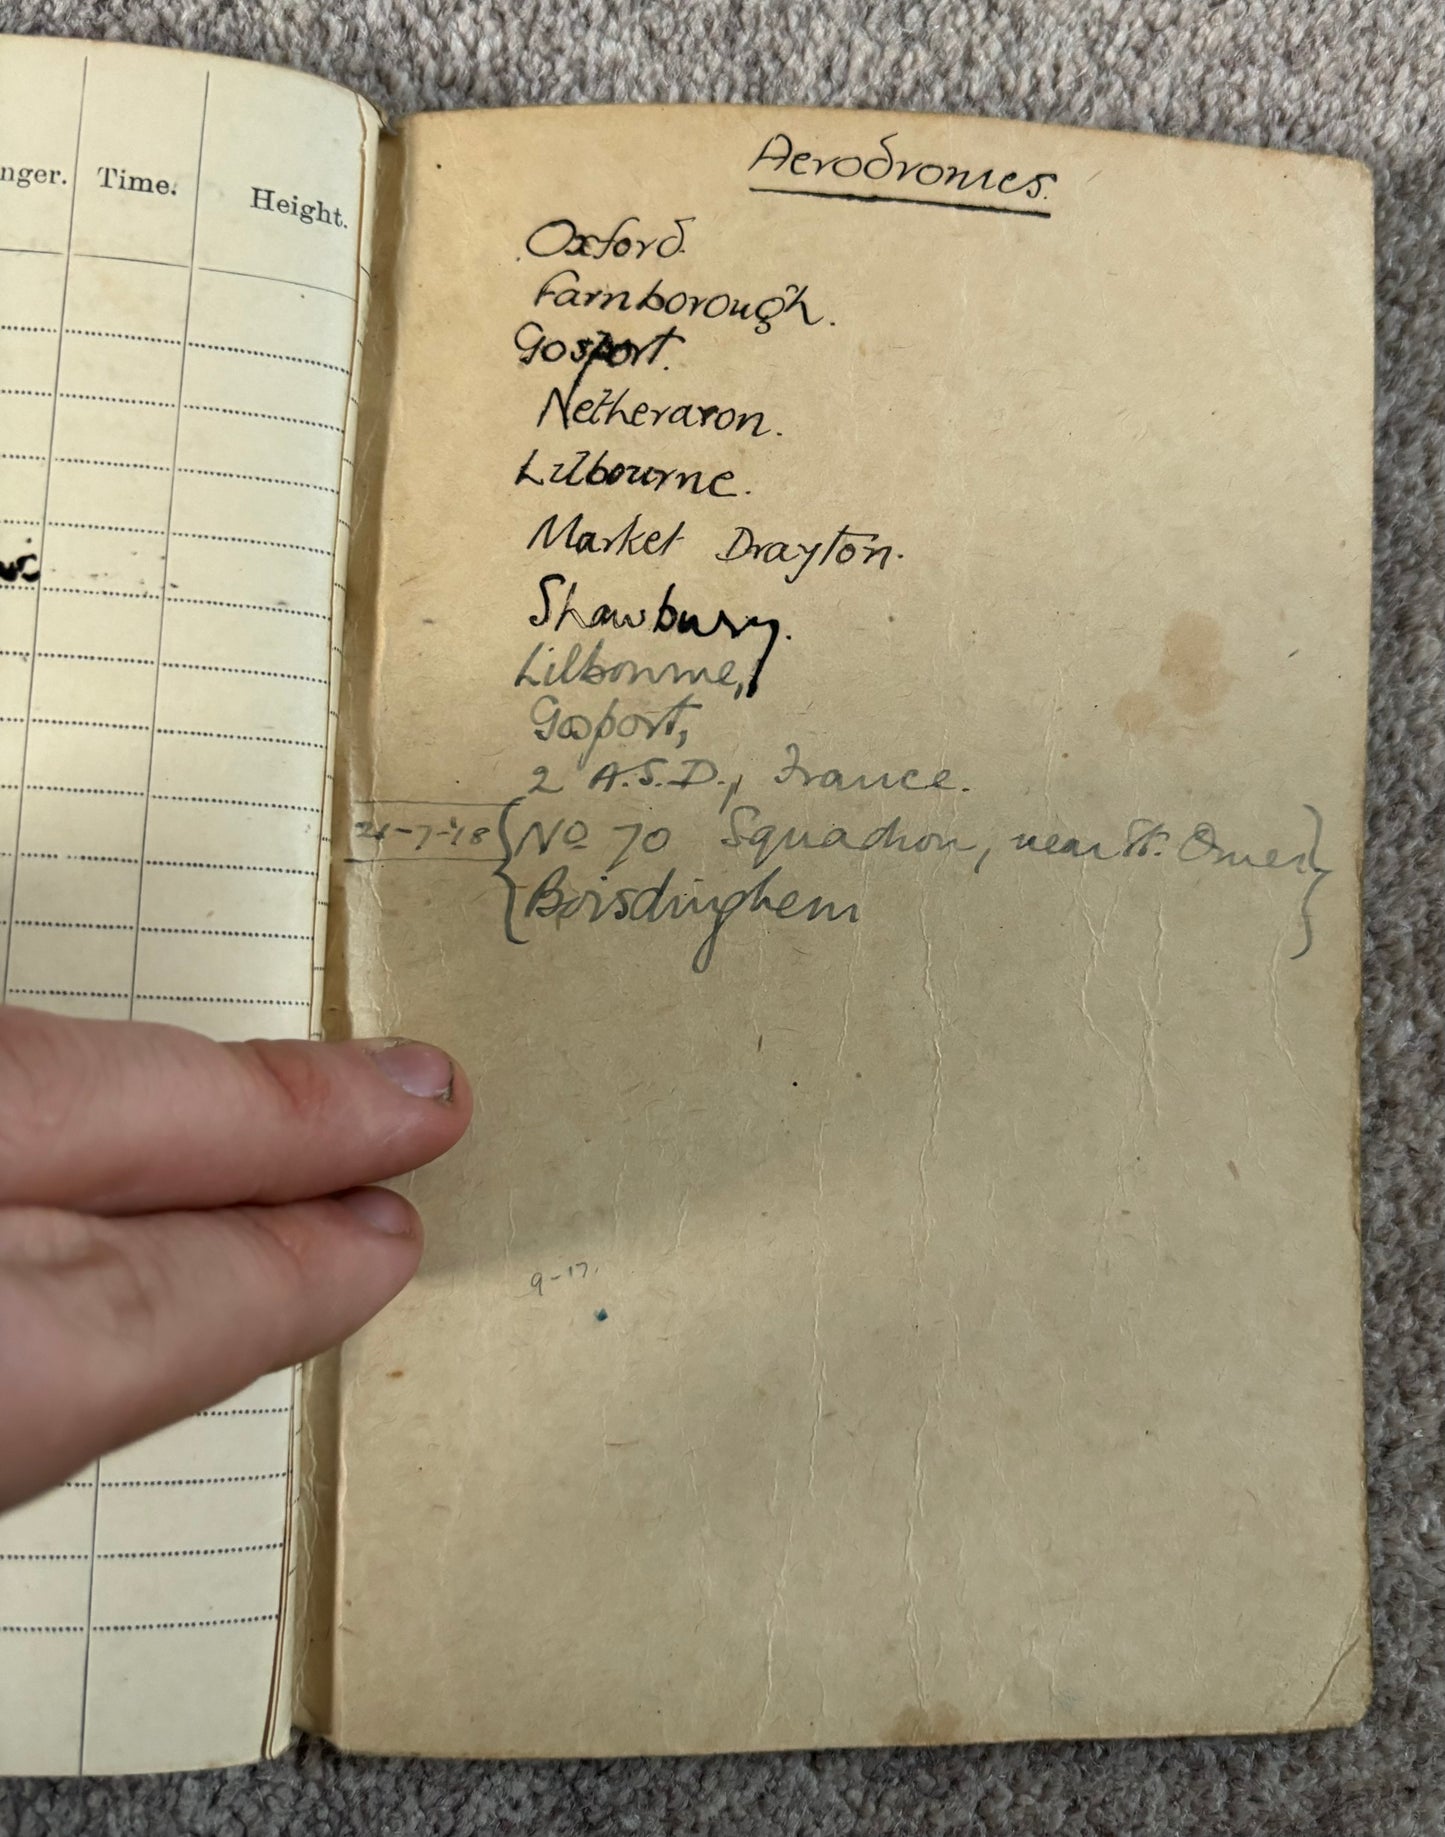 nger. Time. Height.
Aerodromes.
Oxford.
Farnborough.
Gosport.
Netheravon.
Lilbourne.
Market Drayton.
Shawbury.
Lilbourne,
Gosport,
2 A.S.D., France.
21-7-'18 { No 70 Squadron, near St. Omer, }
Boisdinghem
9-17.